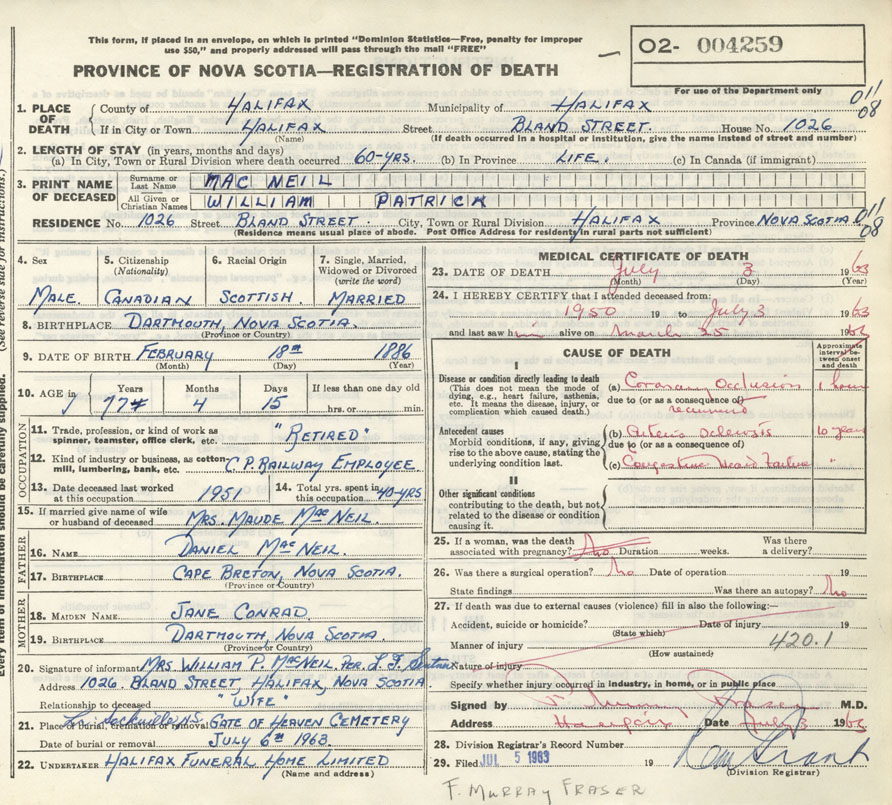 This form, if placed in an envelope, on which is printed "Dominion Statistics—Free, penalty for improper
use $50," and properly addressed will pass through the mail "FREE"
O2- 004259
PROVINCE OF NOVA SCOTIA—REGISTRATION OF DEATH
For use of the Department only
011
08
1. PLACE OF DEATH
County of HALIFAX Municipality of HALIFAX
If in City or Town HALIFAX Street BLAND STREET. House No. 1026
(Name) (If death occurred in a hospital or institution, give the name instead of street and number)
2. LENGTH OF STAY (in years, months and days)
(a) In City, Town or Rural Division where death occurred 60-YRS. (b) In Province LIFE. (c) In Canada (if immigrant)
3. PRINT NAME OF DECEASED
Surname or Last Name MAC NEIL
All Given or Christian Names WILLIAM PATRICK
RESIDENCE No. 1026 Street BLAND STREET. City, Town or Rural Division HALIFAX Province NOVA SCOTIA.
(Residence means usual place of abode. Post Office Address for residents in rural parts not sufficient)
011
08
(See reverse side for instructions.)
Every item of information should be carefully supplied.
4. Sex
MALE.
5. Citizenship (Nationality)
CANADIAN
6. Racial Origin
SCOTTISH.
7. Single, Married, Widowed or Divorced (write the word)
MARRIED
8. BIRTHPLACE DARTMOUTH, NOVA SCOTIA.
(Province or Country)
9. DATE OF BIRTH FEBRUARY 18TH 1886
(Month) (Day) (Year)
10. AGE in
Years 77
Months 4
Days 15
If less than one day old
hrs. or min.
OCCUPATION
11. Trade, profession, or kind of work as
spinner, teamster, office clerk, etc. "RETIRED"
12. Kind of industry or business, as cotton-
mill, lumbering, bank, etc. C.P. RAILWAY EMPLOYEE
13. Date deceased last worked at this occupation 1951
14. Total yrs. spent in this occupation 40-YRS
15. If married give name of wife
or husband of deceased MRS. MAUDE MAC NEIL.
FATHER
16. NAME DANIEL MAC NEIL.
17. BIRTHPLACE CAPE BRETON, NOVA SCOTIA.
(Province or Country)
MOTHER
18. MAIDEN NAME JANE CONRAD
19. BIRTHPLACE DARTMOUTH, NOVA SCOTIA
(Province or Country)
20. Signature of informant MRS WILLIAM P. MACNEIL. PER. L. F.
Address 1026. BLAND STREET HALIFAX, NOVA SCOTIA.
Relationship to deceased "WIFE"
Sackville N.S.
21. Place of burial, cremation or removal GATE OF HEAVEN CEMETERY
Date of burial or removal JULY 6TH 1963.
22. UNDERTAKER HALIFAX FUNERAL HOME LIMITED
(Name and address)
MEDICAL CERTIFICATE OF DEATH
23. DATE OF DEATH July 3 1963
(Month) (Day) (Year)
24. I HEREBY CERTIFY that I attended deceased from:
1950 19 to July 3 1963
and last saw him alive on March 25 196
CAUSE OF DEATH
Approximate interval between onset and death
I
Disease or condition directly leading to death
(This does not mean the mode of
dying, e.g., heart failure, asthenia,
etc. It means the disease, injury, or
complication which caused death.)
(a) Coronary Occlusion 1 hour
due to (or as a consequence of)
recurrent
Antecedent causes
Morbid conditions, if any, giving
rise to the above cause, stating the
underlying condition last.
(b) Arterio Sclerosis 10 years
due to (or as a consequence of)
(c) Congestive Heart Failure "
II
Other significant conditions
contributing to the death, but not
related to the disease or condition
causing it.
25. If a woman, was the death
associated with pregnancy? No Duration weeks. Was there a delivery?
26. Was there a surgical operation? No Date of operation 19
State findings Was there an autopsy? No
27. If death was due to external causes (violence) fill in also the following:—
Accident, suicide or homicide? Date of injury 19
(State which)
Manner of injury 420.1
(How sustained)
Nature of injury
Specify whether injury occurred in industry, in home, or in public place
Signed by F. Murray Fraser M.D.
Address Halifax Date July 3 1963
28. Division Registrar's Record Number
29. Filed JUL 5 1963 19 Grant
(Division Registrar)
F. MURRAY FRASER